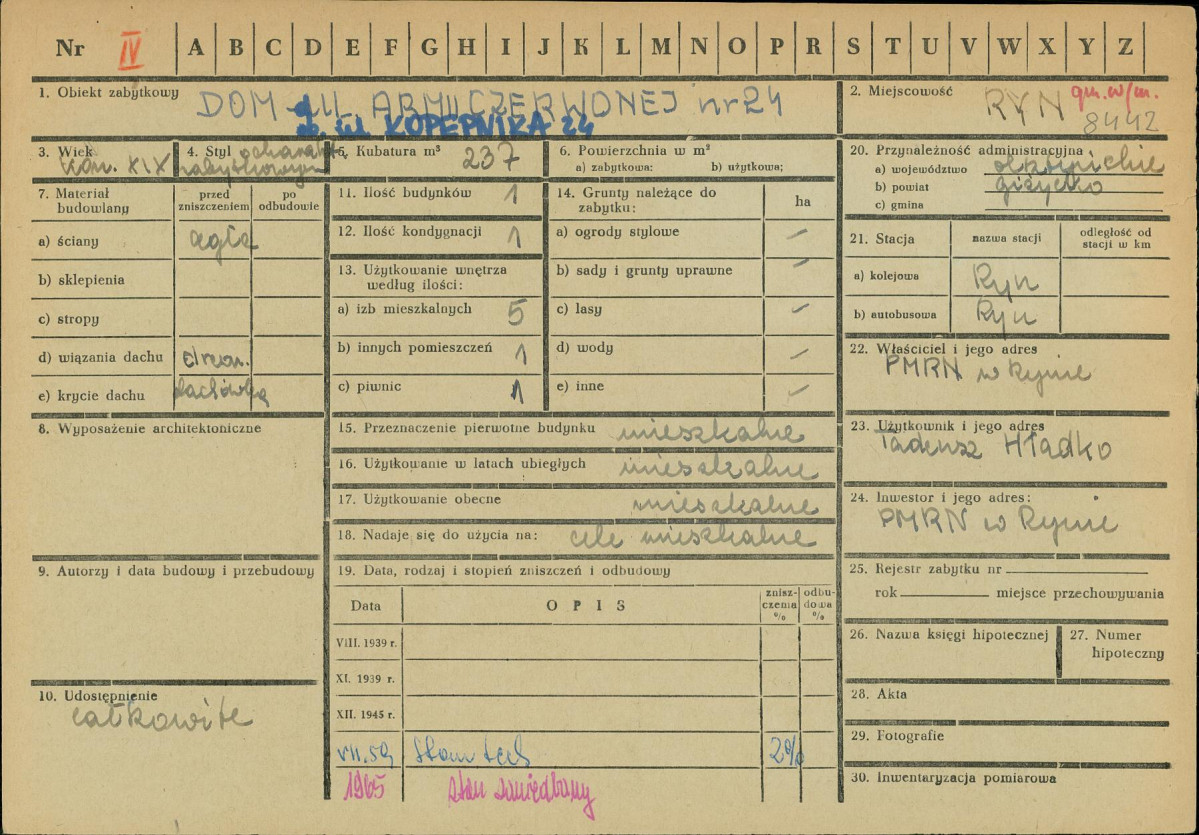 Nr IV A B C D E F G H I J K L M N O P R S T U V W X Y Z
1. Obiekt zabytkowy DOM ul. ARMII CZERWONEJ nr 24
ob. ul. KOPERNIKA 24
2. Miejscowość RYN gm. w/m.
8442
3. Wiek kon. XIX
4. Styl o charakt.
zabytkowym
5. Kubatura m³ 237
6. Powierzchnia w m²
a) zabytkowa: b) użytkowa;
20. Przynależność administracyjna
a) województwo olsztyńskie
b) powiat giżycko
c) gmina
7. Materiał budowlany
przed zniszczeniem
po odbudowie
a) ściany cegła
b) sklepienia
c) stropy
d) wiązania dachu drewn.
e) krycie dachu dachówka
11. Ilość budynków 1
12. Ilość kondygnacji 1
13. Użytkowanie wnętrza
według ilości:
a) izb mieszkalnych 5
b) innych pomieszczeń 1
c) piwnic 1
14. Grunty należące do
zabytku: ha
a) ogrody stylowe —
b) sady i grunty uprawne —
c) lasy —
d) wody —
e) inne —
21. Stacja
nazwa stacji
odległość od
stacji w km
a) kolejowa Ryn
b) autobusowa Ryn
22. Właściciel i jego adres
PMRN w Rynie
8. Wyposażenie architektoniczne
15. Przeznaczenie pierwotne budynku mieszkalne
16. Użytkowanie w latach ubiegłych mieszkalne
17. Użytkowanie obecne mieszkalne
18. Nadaje się do użycia na: cele mieszkalne
23. Użytkownik i jego adres
Tadeusz Hładko
24. Inwestor i jego adres:
PMRN w Rynie
9. Autorzy i data budowy i przebudowy
19. Data, rodzaj i stopień zniszczeń i odbudowy
Data
OPIS
znisz-
czenia
%
odbu-
dowa
%
VIII. 1939 r.
XI. 1939 r.
XII. 1945 r.
VII.59 stan tech 2%
1965 stan zaniedbany
25. Rejestr zabytku nr
rok miejsce przechowywania
26. Nazwa księgi hipotecznej
27. Numer
hipoteczny
10. Udostępnienie
całkowite
28. Akta
29. Fotografie
30. Inwentaryzacja pomiarowa